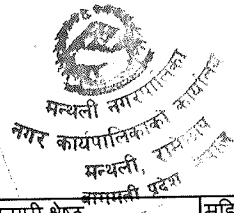 मन्थली नगरपालिका
नगर कार्यपालिकाको कार्यालय
मन्थली, रामेछाप
बागमती प्रदेश नेपाल
श्रेष्ठ